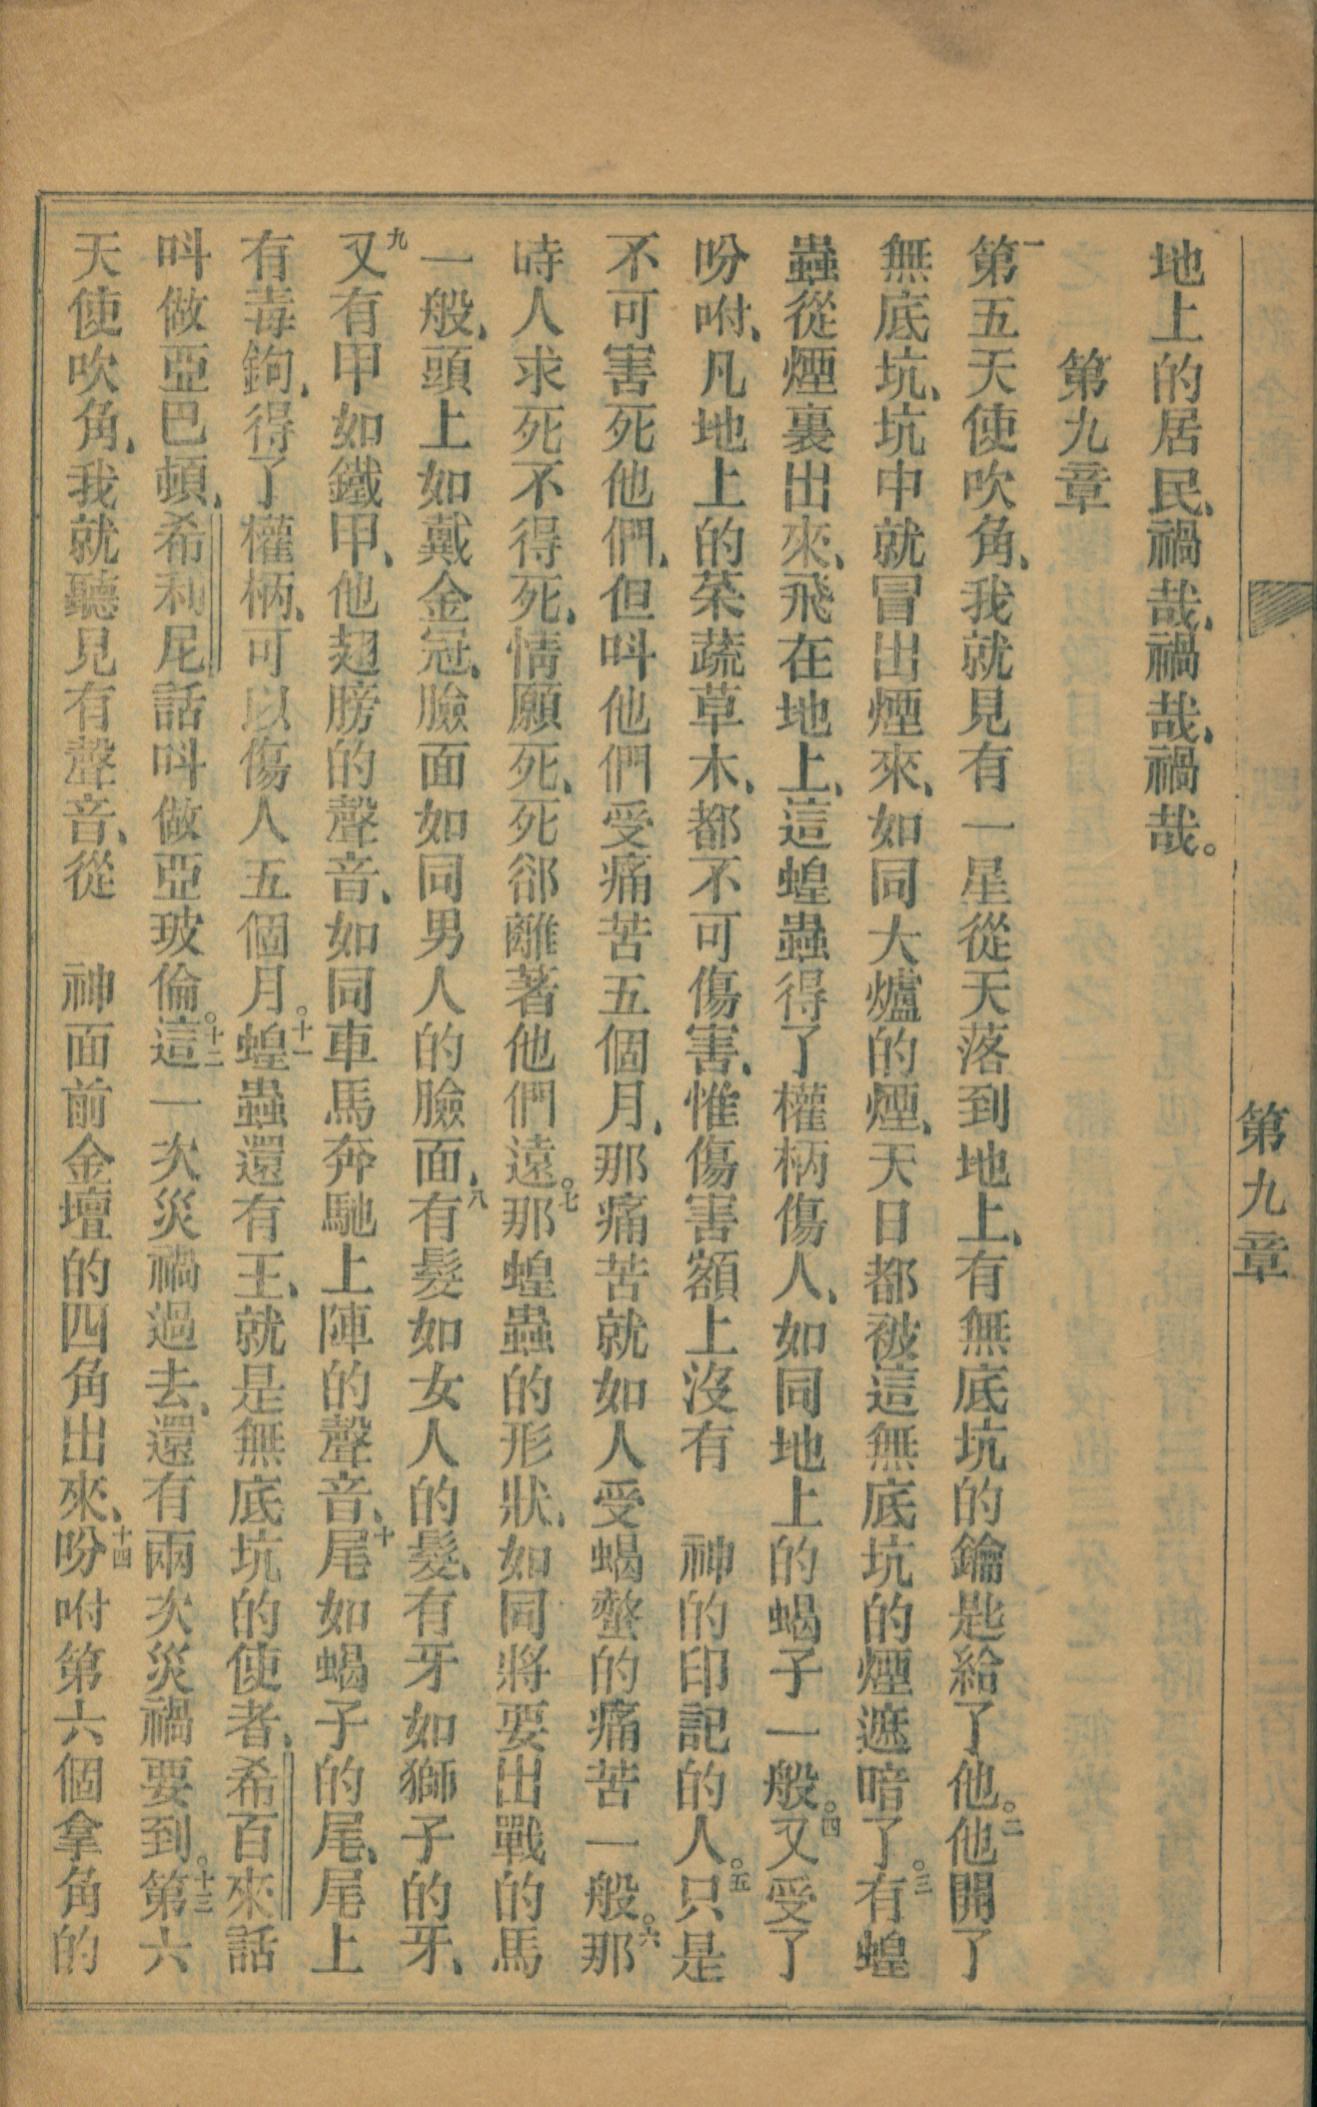 第九章
地上的居民、禍哉、禍哉、禍哉。
第九章
一第五天使吹角、我就見有一星從天落到地上、有無底坑的鑰匙給了他。二他開了
無底坑、坑中就冒出煙來、如同大爐的煙、天日都被這無底坑的煙遮暗了。三有蝗
蟲從煙裏出來、飛在地上、這蝗蟲得了權柄傷人、如同地上的蝎子一般。四又受了
吩咐、凡地上的菜蔬草木、都不可傷害、惟傷害額上沒有　神的印記的人。五只是
不可害死他們、但呌他們受痛苦五個月、那痛苦就如人受蝎螫的痛苦一般。六那
時人求死不得死、情願死、死郤離著他們遠。七那蝗蟲的形狀、如同將要出戰的馬
一般、頭上如戴金冠、臉面如同男人的臉面、八有髮如女人的髮、有牙如獅子的牙、
九又有甲如鐵甲、他翅膀的聲音、如同車馬奔馳上陣的聲音、十尾如蝎子的尾、尾上
有毒鉤、得了權柄、可以傷人五個月。十一蝗蟲還有王、就是無底坑的使者、希百來話
呌做亞巴頓、希利尼話呌做亞玻倫。十二這一次災禍過去、還有兩次災禍要到。十三第六
天使吹角、我就聽見有聲音、從　神面前金壇的四角出來、十四吩咐第六個拿角的